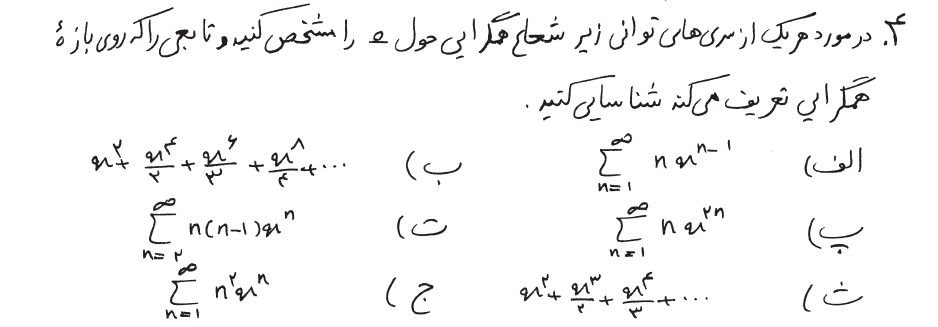 ۴. در مورد هر یک از سری‌های توانی زیر شعاع همگرایی حول ۰ را مشخص کنید و تابعی را که روی بازهٔ
همگرایی تعریف می‌کند شناسایی کنید.
الف) ∑_{n=1}^{∞} n x^{n-1} ب) x^۲ + x^۴/۲ + x^۶/۳ + x^۸/۴ + ...
پ) ∑_{n=1}^{∞} n x^{۲n} ت) ∑_{n=۲}^{∞} n(n-1)x^n
ث) x^۲ + x^۳/۲ + x^۴/۳ + ... ج) ∑_{n=1}^{∞} n^۲ x^n